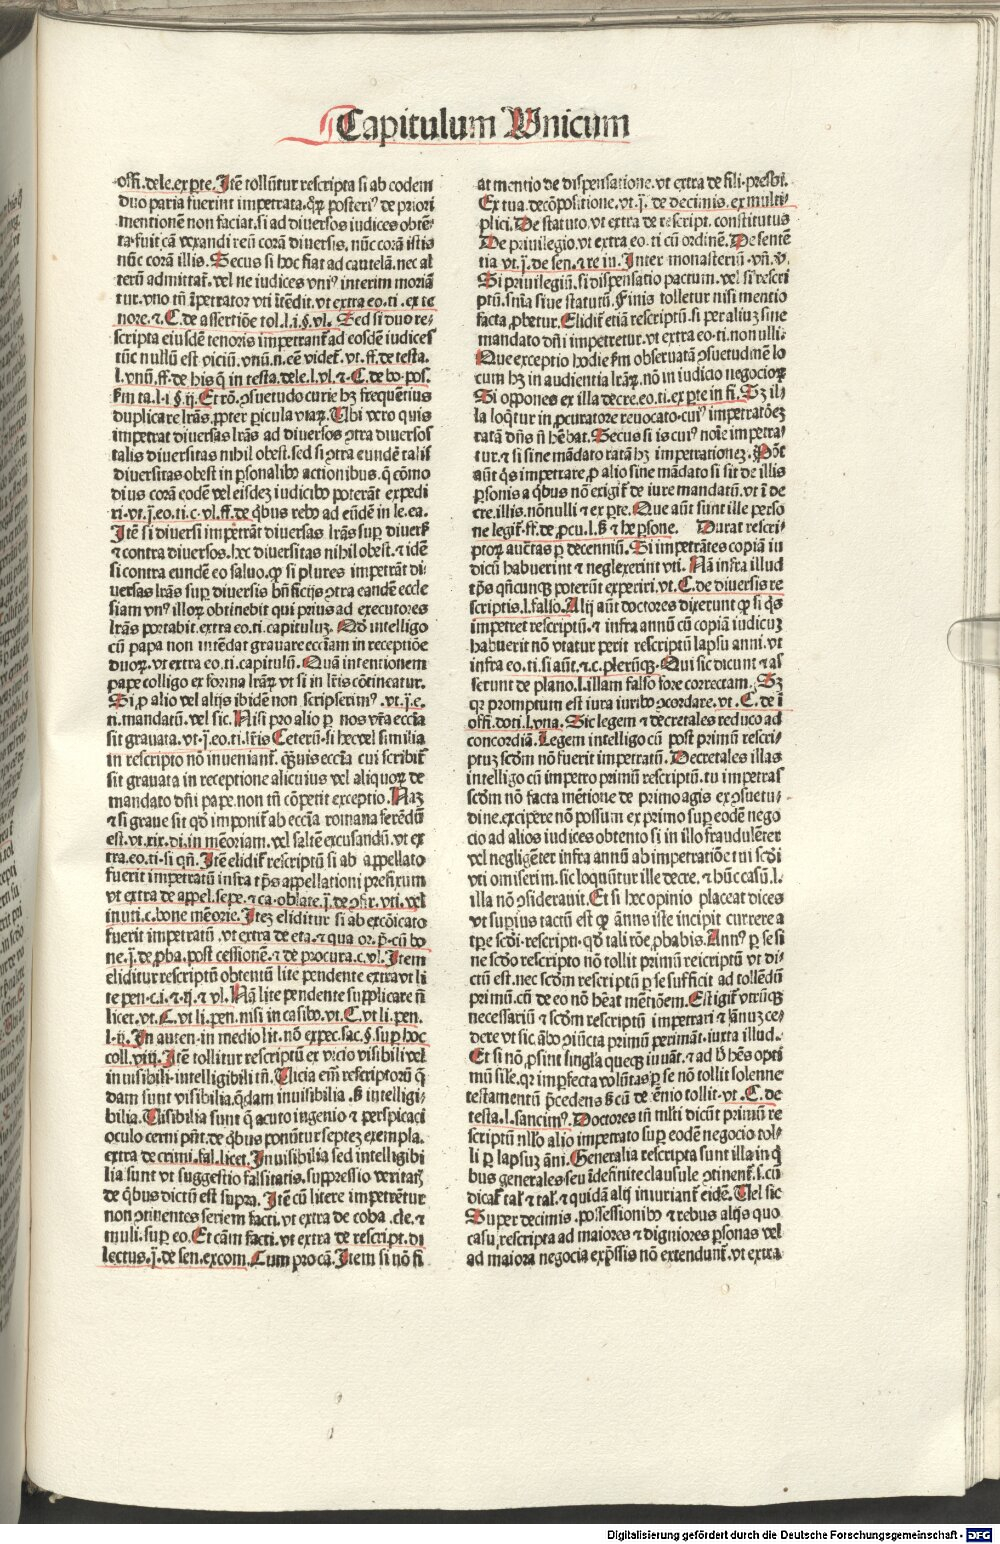 Capitulum Unicum
offi. dele. ex pte. Itē tollūtur rescripta si ab eodem
duo paria fuerint impetrata. q̄ꝝ posteri⁹ de priori
mentionē non faciat. si ad diuersos iudices obtē-
ta fuit cā vexandi reū corā diuersis. nūc corā istis
nūc corā illis. Secus si hoc fiat ad cautelā. nec al
terū admittat̄. vel ne iudices vni⁹ interim moriā
tur. vno tn̄ īpetrator vti ītēdit. vt extra eo. ti. ex te
nore. ⁊. C. de assertiōe tol. l. i. §. vl. Sed si duo re-
scripta eiusdē tenoris impetrant̄ ad eosdē iudices
tūc nullū est viciū. vnū. n. eē videt̄. vt. ff. de testa.
l. vnū. ff. de his q̄ in testa. dele. l. vl. ⁊. C. de bo. pos.
s̄m ta. l. i §. ij. Et rō. ꝯsuetudo curie hꝫ frequētius
duplicare lr̄as. ꝓpter picula viaꝝ. Ubi vero quis
impetrat diuersas lr̄as ad diuersos ꝯtra diuersos
talis diuersitas nihil obest. sed si ꝯtra eundē talis
diuersitas obest in psonalibꝰ actionibus. q̄ cōmo
dius corā eodē vel eisdeꝫ iudicibꝰ poterāt expedi
ri. vt. j. eo. ti. c. vl. ff. de q̄bus rebꝰ ad eūdē in le. ea.
Itē si diuersi impetrāt diuersas lr̄as sup diuers̄
⁊ contra diuersos. hec diuersitas nihil obest. ⁊ idē
si contra eundē eo saluo. ꝙ si plures impetrāt di-
uersas lr̄as sup diuersis bn̄ficijs ꝯtra eandē eccle
siam vn⁹ illoꝝ obtinebit qui prius ad executores
lr̄as portabit. extra eo. ti. capituluꝫ. Qd̄ intelligo
cū papa non intēdat grauare eccl̄iam in receptiōe
duoꝝ. vt extra eo. ti. capitulū. Quā intentionem
pape colligo ex forma lr̄aꝝ vt si in lr̄is cōtineatur.
Si ꝓ alio vel alijs ibidē non scripserim⁹. vt. j. e.
ti. mandatū. vel sic. Nisi pro alio p nos vr̄a eccl̄ia
sit grauata. vt. j. eo. ti. lr̄is Ceterū. si hec vel similia
in rescripto nō inueniant̄. q̄uis eccl̄ia cui scribit̄
sit grauata in receptione alicuius vel aliquoꝝ de
mandato dn̄i pape. non tn̄ cōpetit exceptio. Naꝫ
⁊ si graue sit qd̄ imponit̄ ab eccl̄ia romana ferēdū
est. vt. xix. di. in mēoriam. vel saltē excusandū. vt ex
tra. eo. ti. si qn̄. Itē elidit̄ rescriptū si ab appellato
fuerit impetratū infra tps appellationi prefixum
vt extra de appel. sepe. ⁊ ca. oblate. j. de ꝯfir. vti. vel
inuti. c. bone mēorie. Iteꝫ eliditur si ab excōicato
fuerit impetratū. vt extra de eta. ⁊ qua or. p. cū bo
ne. j. de ꝓba. post cessionē. ⁊ de procura. c. vl. Item
eliditur rescriptū obtentū lite pendente extra vt li
te pen. c. i. ⁊. ij. ⁊ vl. Nā lite pendente supplicare n̄
licet. vt. C. vt li. pen. nisi in casibꝰ. vt. C. vt li. pen.
l. ij. In auten. in medio lit. nō expec. sac. §. sup hoc
coll. viij. Itē tollitur rescriptū ex vicio visibili vel
inuisibili. intelligibili tn̄. Uicia em̄ rescriptorū q̄
dam sunt visibilia. q̄dam inuisibilia. s̄ intelligi-
bilia. Uisibilia sunt q̄ acuto ingenio ⁊ perspicaci
oculo cerni pn̄t. de q̄bus ponūtur septeꝫ exempla.
extra de crimi. fal. licet. Inuisibilia sed intelligibi
lia sunt vt suggestio falsitatis. suppressio veritatꝭ
de q̄bus dictū est supra. Itē cū litere impetrētur
non ꝯtinentes seriem facti. vt extra de coha. cle. ⁊
muli. sup eo. Et cām facti. vt extra de rescript. di
lectus. j. de sen. excom. Cum pro cā. Item si nō fi
at mentio de dispensatione. vt extra de fili. presbi.
Ex tua. de cōpositione. vt. j. de decimis. ex multi-
plici. De statuto. vt extra de rescript. constitutus
De priuilegio. vt extra eo. ti cū ordinē. De sentē
tia vt. j. de sen. ⁊ re iu. Inter monasteriū. vn̄. v̄.
Si priuilegiū. si dispensatio pactum. vel si rescri
ptū. sn̄ia siue statutū. Finis tolletur nisi mentio
facta ꝓbetur. Elidit̄ etiā rescriptū. si per aliuꝫ sine
mandato dn̄i impetretur. vt extra eo. ti. nonulli.
Que exceptio hodie s̄m obseruatā ꝯsuetudinē lo
cum hꝫ in audientia lr̄aꝝ. nō in iudicio negocioꝝ
Si oppones ex illa decre. eo. ti. ex pte in fi. Sꝫ il-
la loq̄tur in ꝓcuratore reuocato. cui⁹ impetratōeꝫ
ratā dn̄s n̄ hēbat. Secus si is cui⁹ noīe impetra-
tur. ⁊ si sine mādato ratā hꝫ impetrationeꝫ. Pōt
aūt q̄s impetrare. ꝓ alio sine mādato si sit de illis
psonis a q̄bus nō exigit̄ de iure mandatū. vt ī de
cre. illis. nōnulli ⁊ ex pte. Que aūt sunt ille perso
ne legit̄. ff. de ꝓcu. l. s̄ ⁊ he psone. Durat rescri-
ptoꝝ auctas p decenniū. Si impetrātes copiā iu
dicū habuerint ⁊ neglexerint vti. Nā infra illud
tps qn̄cunqꝫ poterūt experiri. vt. C. de diuersis re
scriptis. l. falso. Alij aūt doctores dixerunt ꝙ si q̄s
impetret rescriptū. ⁊ infra annū cū copiā iudicuꝫ
habuerit nō vtatur perit rescriptū lapsu anni. vt
infra eo. ti. si aūt. ⁊. c. plerūqꝫ. Qui sic dicunt ⁊ as
serunt de plano. l. illam falso fore correctam. Sꝫ
qꝛ promptum est iura iuribꝰ ꝯcordare. vt. C. de ī
offi. doti. l. vna. Sic legem ⁊ decretales reduco ad
concordiā. Legem intelligo cū post primū rescri-
ptuꝫ scd̄m nō fuerit impetratū. Decretales illas
intelligo cū impetro primū rescriptū. tu impetras
scd̄m nō facta mētione de primo agis ex ꝯsuetu-
dine. excipere nō possum ex primo sup eodē nego
cio ad alios iudices obtento si in illo fraudulēter
vel negligēter infra annū ab impetratiōe tui scd̄i
vti omiserim. sic loquūtur ille decre. ⁊ hūc casū. l.
illa nō ꝯsiderauit. Et si hec opinio placeat dices
vt superius tactū est qꝫ ānns iste incipit currere a
tpe scd̄i. rescripti. qd̄ tali rōe. ꝓbabis. Ann⁹ p se si
ne scd̄o rescripto nō tollit primū reicriptū vt di-
ctū est. nec scd̄m rescriptū p se sufficit ad tollēdū
primū. cū de eo nō hēat mētiōem. Est igit̄ vtrūqꝫ
necessariū ⁊ scd̄m rescriptū impetrari ⁊ ānuꝫ ce-
dere vt sic ābo ꝯiūcta primū perimāt. iuxta illud.
Et si nō ꝓsint singla queqꝫ iuuāt. ⁊ ad h̄ hēs opti
mū sile. qꝛ impfecta volūtas p se nō tollit solenne
testamentū pcedens s̄ cū decēnio tollit. vt. C. de
testa. l. sancim⁹. Doctores tn̄ mlti dicūt primū re
scriptū nllo alio impetrato sup eodē negocio tol-
li p lapsuꝫ āni. Generalia rescripta sunt illa in q̄
bus generales seu īdefinite clausule ꝯtinent̄. s. cū
dicat̄ tal̄ ⁊ tal̄. ⁊ quidā alij iniuriant̄ eidē. Uel sic
Super decimis. possessionibꝰ ⁊ rebus alijs quo
casu rescripta ad maiores ⁊ digniores psonas vel
ad maiora negocia expssis nō extendunt̄. vt extra
Digitalisierung gefördert durch die Deutsche Forschungsgemeinschaft - DFG